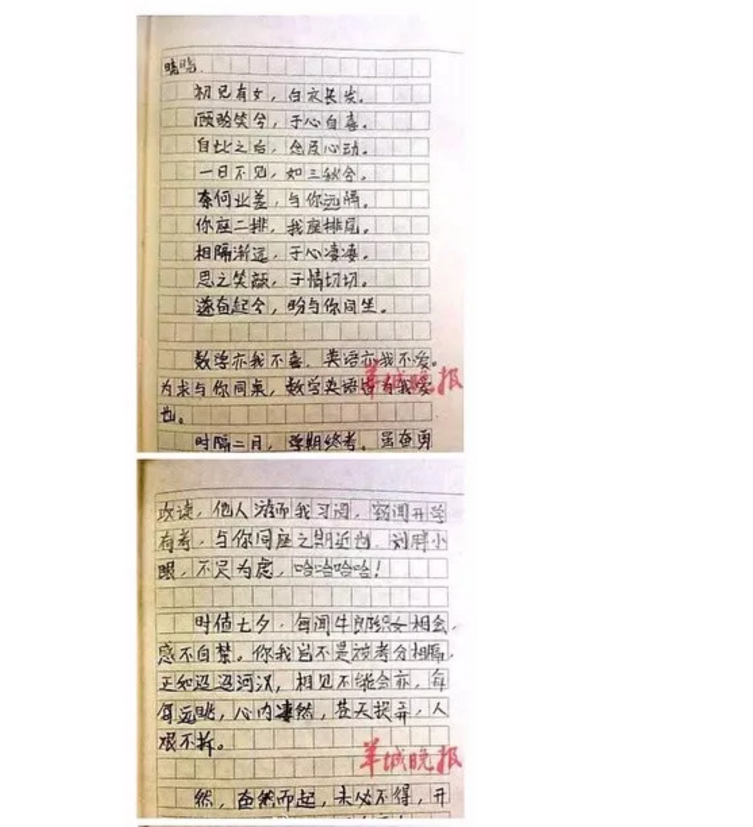 晓晓.
初见有女，白衣长发。
顾盼笑兮，于心自喜。
自此之后，念及心动。
一日不见，如三秋兮。
奈何业差，与你远隔。
你座二排，我座排尾。
相隔渐远，于心凄凄。
思之笑颜，于情切切。
遂奋起兮，盼与你同坐。
数学亦我不喜，英语亦我不爱。
为求与你同桌，数学英语皆为我爱
也。
羊城晚报
时隔二月，学期终考，虽奋勇
攻读，他人游而我习阅，窃闻开学
有考，与你同座之期近也，刘胖小
眼，不足为虑，哈哈哈哈！
时值七夕，每闻牛郎织女相会，
感不自禁。你我岂不是被考分相隔，
正如迢迢河汉，相见不能会亦，每
每远眺，心内凄然，苍天捉弄，人
艰不拆。
羊城晚报
然，奋然而起，未必不得，开